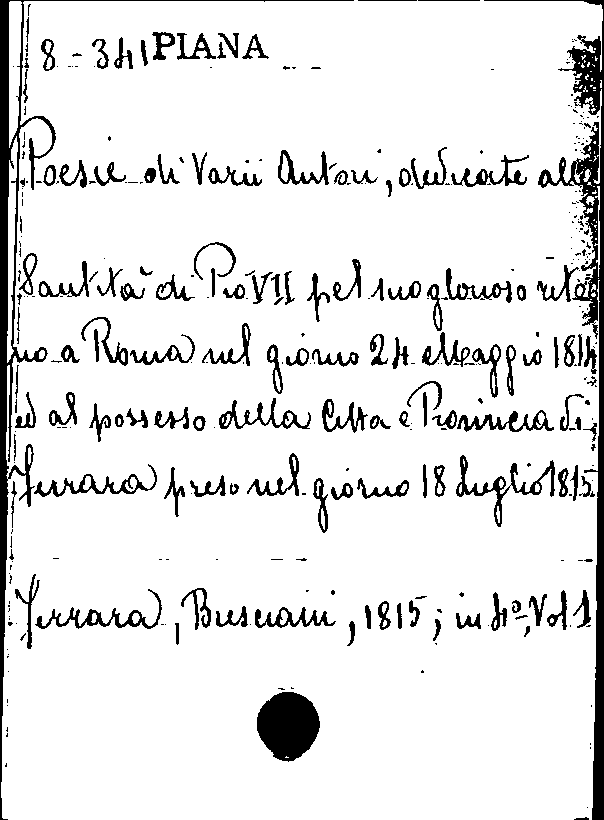 8-341 PIANA
Poesie di Varii Autori, dedicate alla
Santità di Pio VII pel suo glorioso ritor
no a Roma nel giorno 24 Maggio 1814
ed al possesso della Città e Provincia di
Ferrara preso nel giorno 18 Luglio 1815
Ferrara, Bresciani, 1815; in 4º, Vol 1